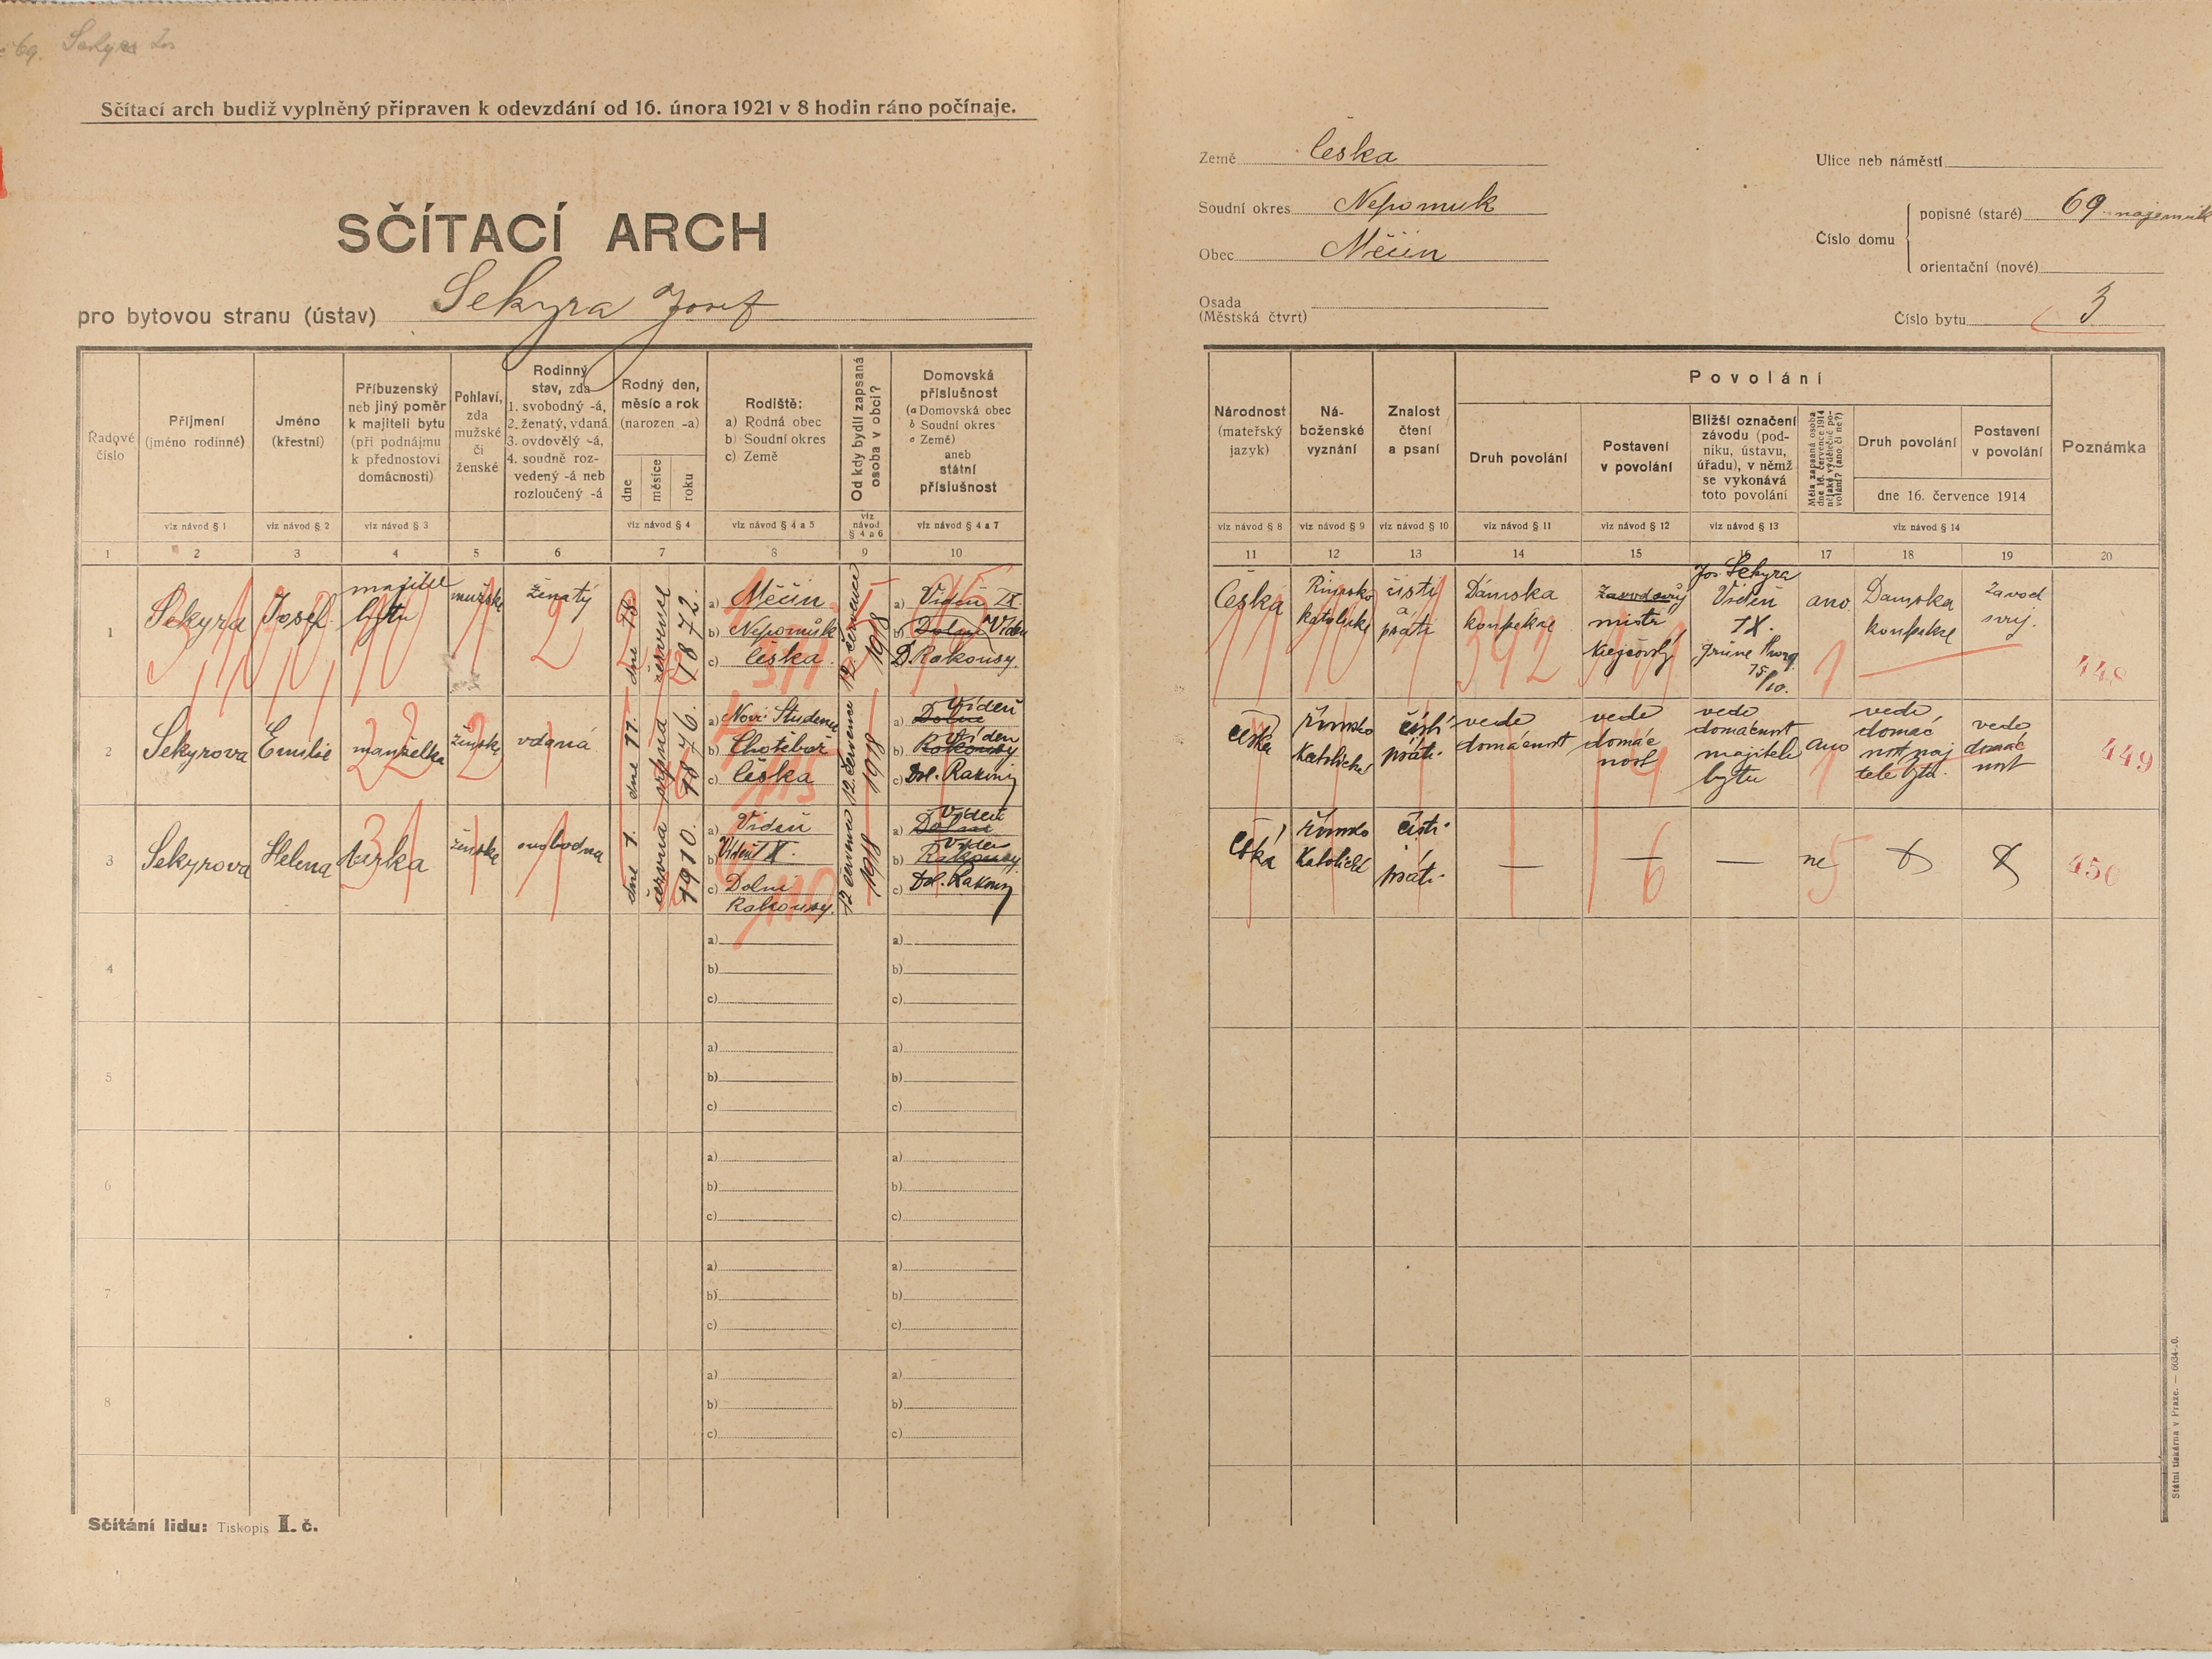 69. Sekyra Jos
Sčítací arch budiž vyplněný připraven k odevzdání od 16. února 1921 v 8 hodin ráno počínaje.
SČÍTACÍ ARCH
pro bytovou stranu (ústav) Sekyra Josef
Země Česka
Soudní okres Nepomuk
Obec Měčin
Osada
(Městská čtvrt)
Ulice neb náměstí
Číslo domu
popisné (staré) 69 najemník
orientační (nové)
Číslo bytu 3
Řadové číslo
Příjmení (jméno rodinné)
Jméno (křestní)
Příbuzenský neb jiný poměr k majiteli bytu (při podnájmu k přednostovi domácnosti)
Pohlaví, zda mužské či ženské
Rodinný stav, zda 1. svobodný -á, 2. ženatý, vdaná 3. ovdovělý -á, 4. soudně rozvedený -á neb rozloučený -á
Rodný den, měsíc a rok (narozen -a)
dne měsíce roku
Rodiště: a) Rodná obec b) Soudní okres c) Země
Od kdy bydlí zapsaná osoba v obci?
Domovská příslušnost (a Domovská obec b Soudní okres c Země) aneb státní příslušnost
viz návod § 1 viz návod § 2 viz návod § 3 viz návod § 4 viz návod § 4 a 5 viz návod § 4 a 6 viz návod § 4 a 7
1 2 3 4 5 6 7 8 9 10
Národnost (mateřský jazyk)
Náboženské vyznání
Znalost čtení a psaní
Povolání
Druh povolání
Postavení v povolání
Bližší označení závodu (podniku, ústavu, úřadu), v němž se vykonává toto povolání
Měla zapsaná osoba dne 16. července 1914 nějaké výdělečné povolání? (ano či ne?)
Druh povolání
Postavení v povolání
dne 16. července 1914
Poznámka
viz návod § 8 viz návod § 9 viz návod § 10 viz návod § 11 viz návod § 12 viz návod § 13 viz návod § 14
11 12 13 14 15 16 17 18 19 20
1 Sekyra Josef majitel bytu mužske ženatý dne 18. července 1872.
a) Měčin
b) Nepomůk
c) Česka
12. července 1918
a) Videň IX.
b) Dolni Viden
c) D. Rakousy.
Česka Řimsko katolické čisti a psáti Dámska konfekse Zavod svůj mistr Krejčovský
Jos. Sekyra Videň IX. Grüne Thorg. 15/10.
ano Damska konfekse Zavod svuj.
448
2 Sekyrova Emilie manželka ženske vdaná dne 11. srpna 1876.
a) Nová Studenec
b) Chotěboř
c) Česka
12. července 1918
a) Dolni Vídeň
b) Rakousy Víden
c) Dol. Rakousy
Česká Římsko Katolické čísti psáti vede domácnost vede domácnost vede domácnost majitele bytu ano vede domácnost maj tele bytu. vede domácnost
449
3 Sekyrova Helena dcerka ženske svobodna dne 1. června 1910.
a) Videň
b) Vídeň IX.
c) Dolni Rakousy.
12 července 1918
a) Dolni Vídeň
b) Rakousy Víden
c) Dol. Rakousy
Česká Římsko Katolické čisti psáti — — — ne
450
4
a)
b)
c)
a)
b)
c)
5
a)
b)
c)
a)
b)
c)
6
a)
b)
c)
a)
b)
c)
7
a)
b)
c)
a)
b)
c)
8
a)
b)
c)
a)
b)
c)
Sčítání lidu: Tiskopis I. č.
Státní tiskárna v Praze. — 6034-20.